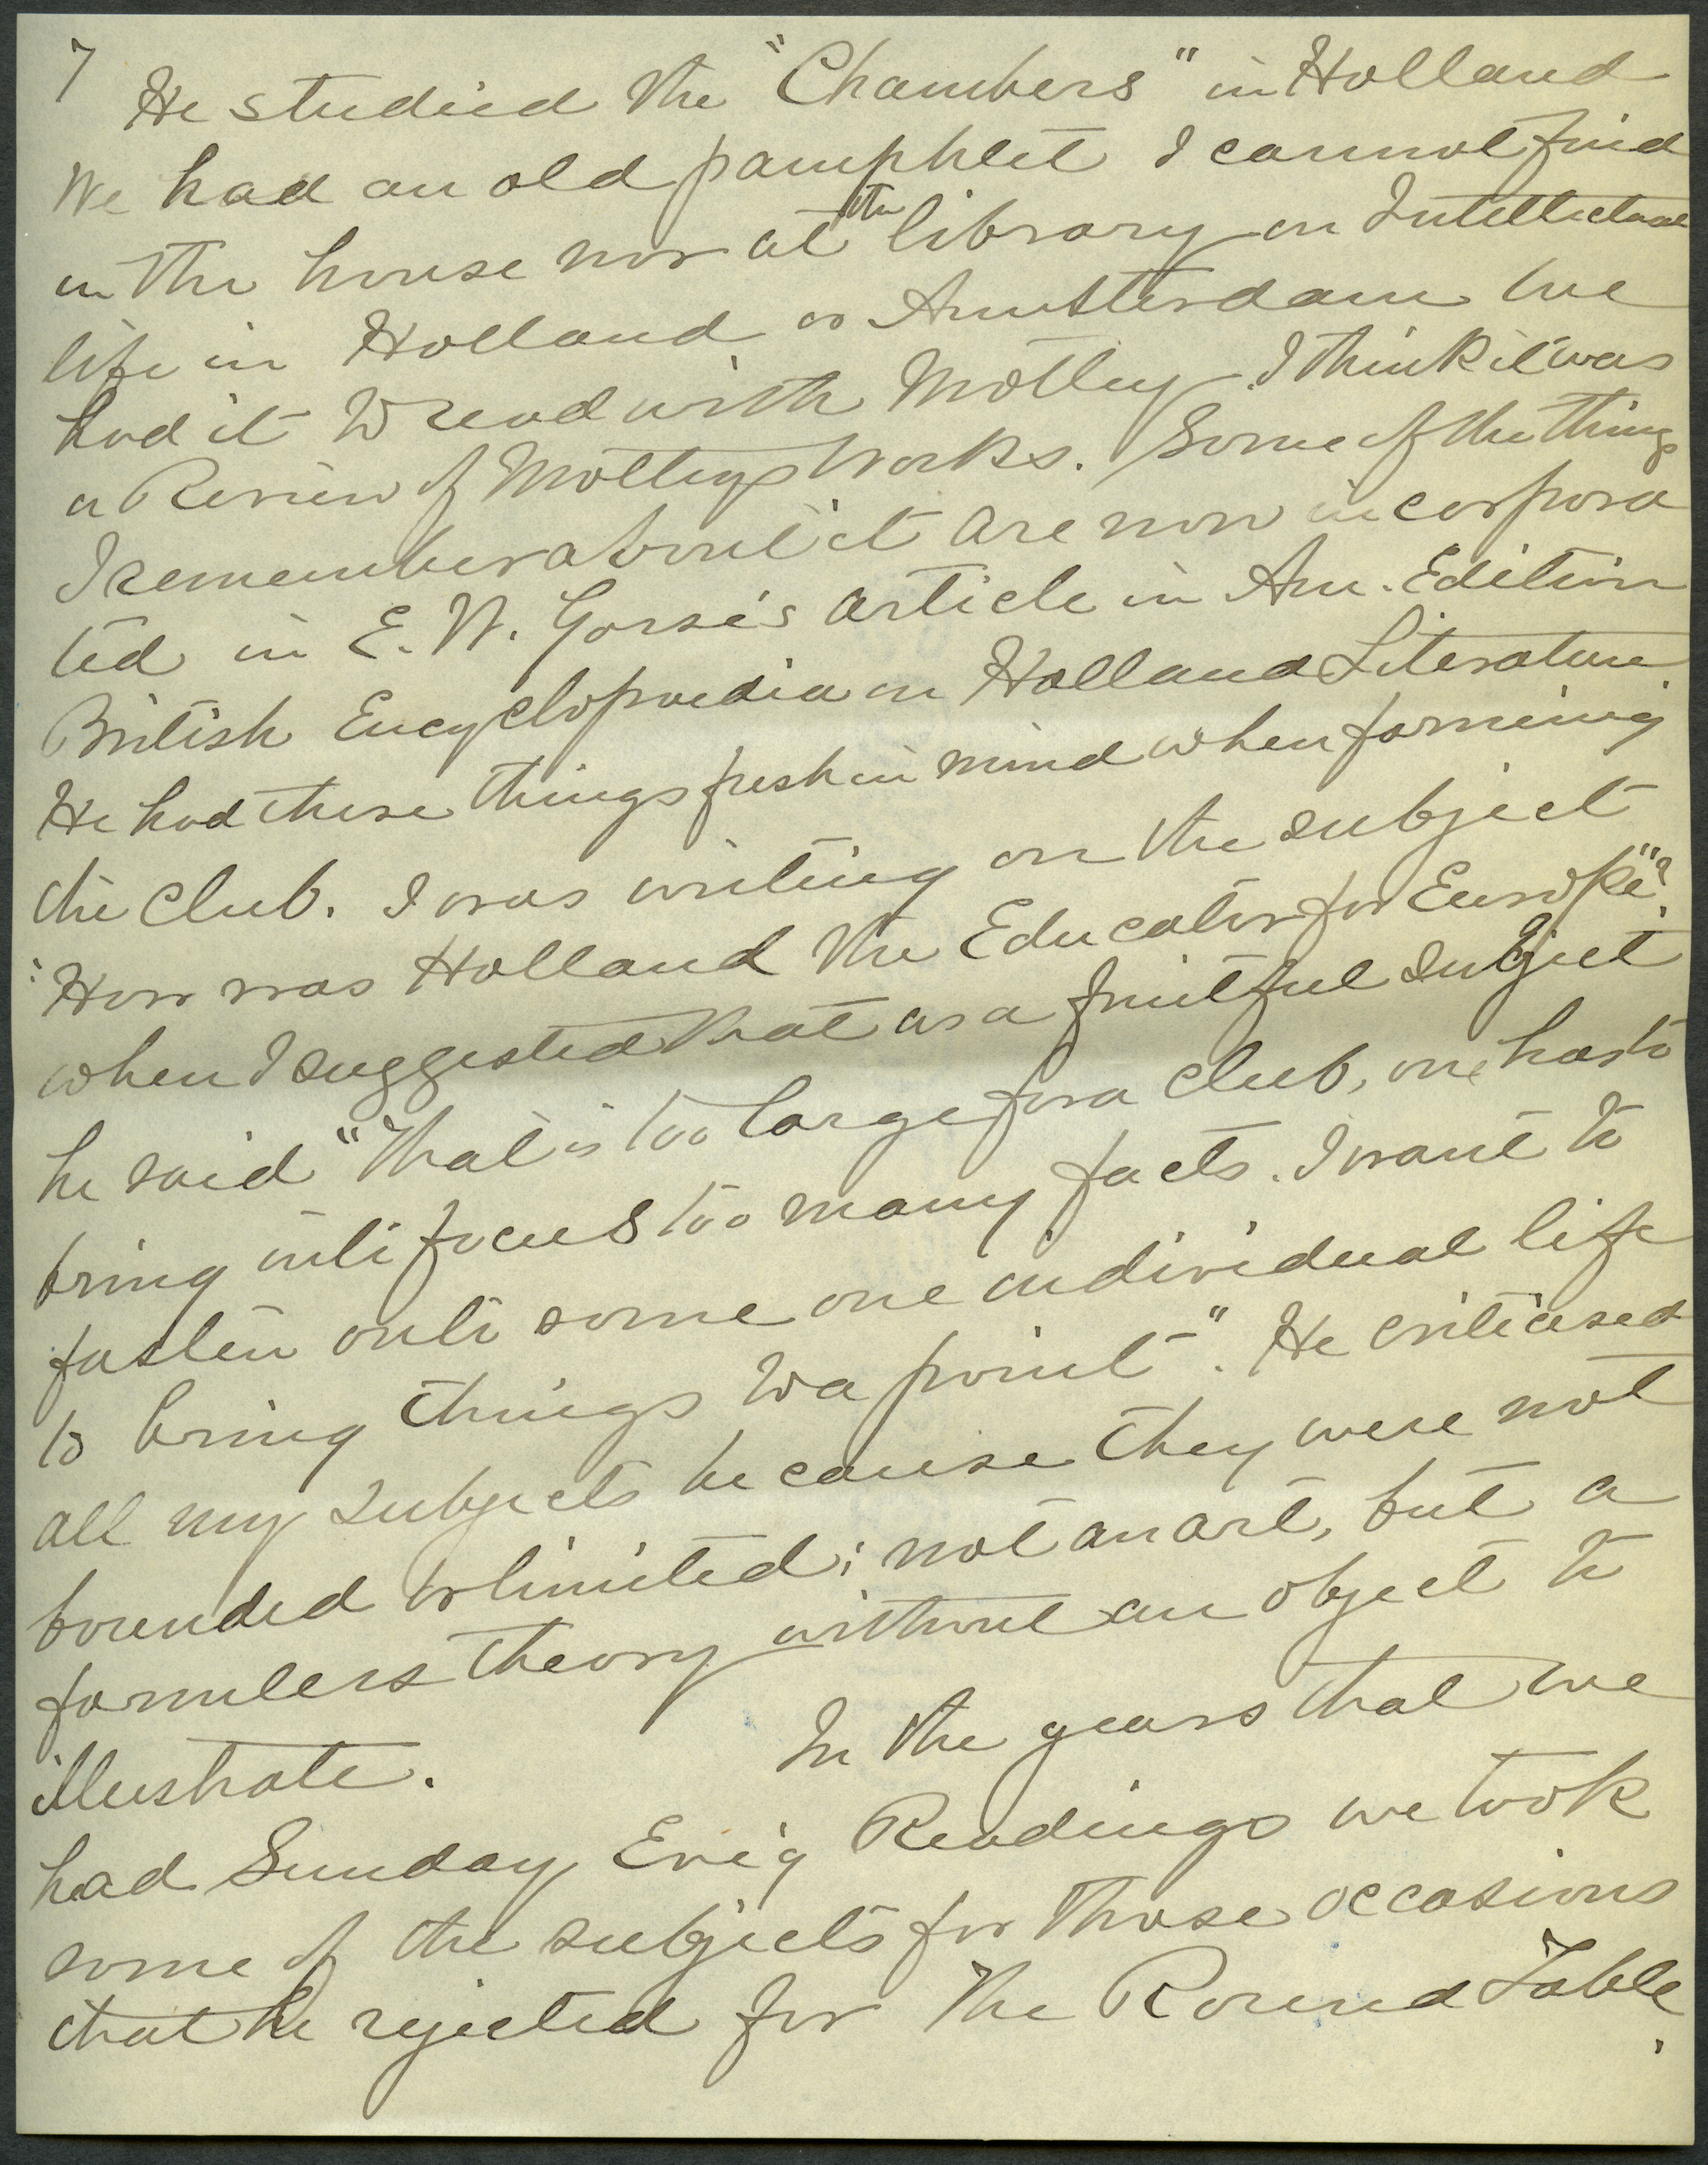 7
He studied the "Chambers" in Holland
We had an old pamphlet I cannot find
in the house nor at the library on Intellectual
life in Holland or Amsterdam we
had it to read with Motley. I think it was
a Review of Motleys Works. Some of the things
I remember about it are now incorpora
ted in E. W. Gosse's article in Am. Edition
British Encyclopaedia on Holland Literature.
He had these things fresh in mind when forming
the club. I was writing on the subject
"How was Holland the Educator for Europe"?
when I suggested that as a fruitful subject
he said "That is too large for a club, one has to
bring into focus too many facts. I want to
fasten onto some one individual life
to bring things to a point". He criticised
all my subjects because they were not
bounded or limited; not an art, but a
formless theory without an object to
illustrate. In the years that we
had Sunday Ev'g Readings we took
some of the subjects for those occasions
that he rejected for The Round Table.